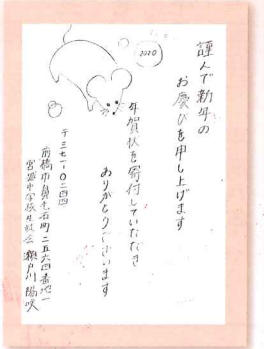 謹んで新年の
お慶びを申し上げます
2020
年賀状を寄付していただき
ありがとうございます
〒三七一-〇二四四
前橋市鼻毛石町二五六四番地一
宮城中学校生徒会 瀬戸川陽咲